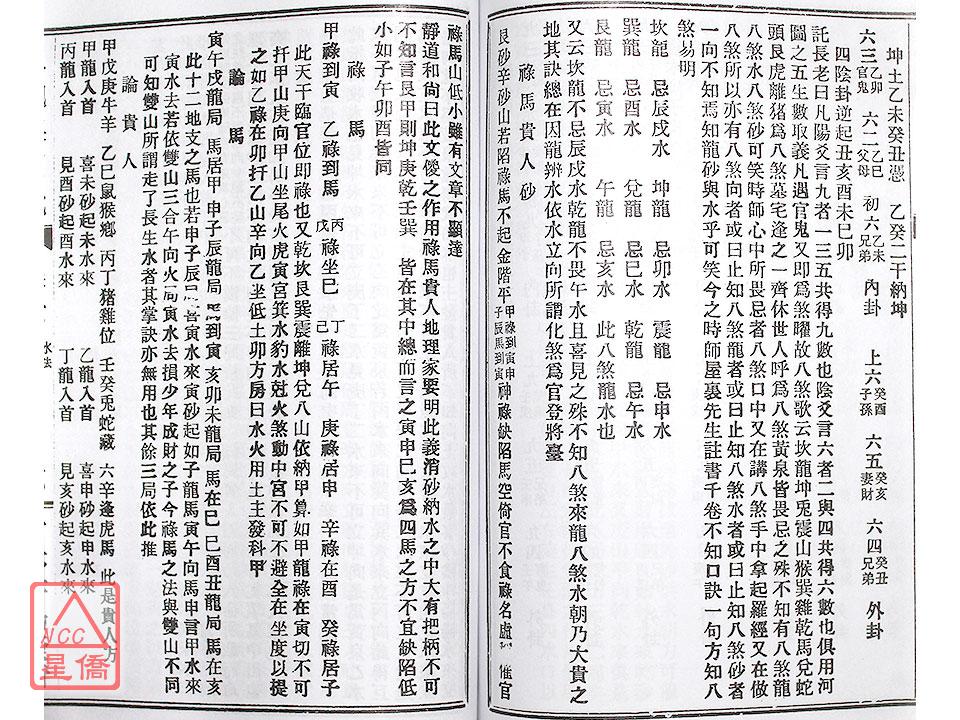 坤土乙未癸丑憑　乙癸二干納坤
六三乙卯官鬼　六二乙巳父母　初六乙未兄弟　內卦　上六癸酉子孫　六五癸亥妻財　六四癸丑兄弟　外卦
四陰卦逆起丑亥酉未巳卯
託長老曰凡陽爻言九者一三五共得九數也陰爻言六者二與四共得六數也俱用河
圖之五生數取義凡遇官鬼又即爲煞曜故八煞歌云坎龍坤兎震山猴巽雞乾馬兌蛇
頭艮虎離猪爲八煞墓宅逢之一齊休世人呼爲八煞黃泉皆畏忌之殊不知有八煞龍
八煞水八煞砂可笑時師心中所畏忌者八煞口中又在講八煞手中拿起羅經又在做
八煞所以亦有八煞向者或曰止知八煞龍者或曰止知八煞水者或曰止知八煞砂者
一向不知焉知龍砂與水乎可笑今之時師屋裏先生註書千卷不知口訣一句方知八
煞易明
坎龍　忌辰戌水　坤龍　忌卯水　震龍　忌申水
巽龍　忌酉水　兌龍　忌巳水　乾龍　忌午水
艮龍　忌寅水　午龍　忌亥水　此八煞龍水也
又云坎龍不忌辰戌水乾龍不畏午水且喜見之殊不知八煞來龍八煞水朝乃大貴之
地其訣總在因龍辨水依水立向所謂化煞爲官登將臺
祿馬貴人砂
艮砂辛砂山若陷祿馬不起金階平甲祿到寅申子辰馬到寅神祿缺陷馬空倚官不食祿名虛　催官
祿馬山低小雖有文章不顯達
靜道和尙曰此文優之作用祿馬貴人地理家要明此義消砂納水之中大有把柄不可
不知言艮甲則坤庚乾壬巽　皆在其中總而言之寅申巳亥爲四馬之方不宜缺陷低
小如子午卯酉皆同
祿　馬
甲祿到寅　乙祿到馬　丙戊祿坐巳　丁己祿居午　庚祿居申　辛祿在酉　癸祿居子
此天干臨官位即祿也又乾坎艮巽震離坤兌八山依納甲算如甲龍祿在寅切不可
扦甲山庚向甲山坐尾火虎寅宮箕水豹水尅火煞動中宮不可不避全在坐度以提
之如乙祿在卯扦乙山辛向乙坐低土卯方房日水火用土主發科甲
論　馬
寅午戌龍局　馬居甲申子辰龍局　馬到寅　亥卯未龍局　馬在巳　巳酉丑龍局　馬在亥
此十二地支之馬也若申子辰局喜寅水來寅砂起如子龍馬寅午向馬申言甲水來
寅水去若依雙山三合午向火局寅水去損少年成財之子今祿馬之法與雙山不同
可知雙山所謂走了長生水者其掌訣亦無用也其餘三局依此推
論貴人
甲戊庚牛羊　乙己鼠猴鄕　丙丁猪雞位　壬癸兎蛇藏　六辛逢虎馬　此是貴人方
甲龍入首　喜未砂起未水來　乙龍入首　喜申砂起申水來
丙龍入首　見酉砂起酉水來　丁龍入首　見亥砂起亥水來
水法
NCC
星僑